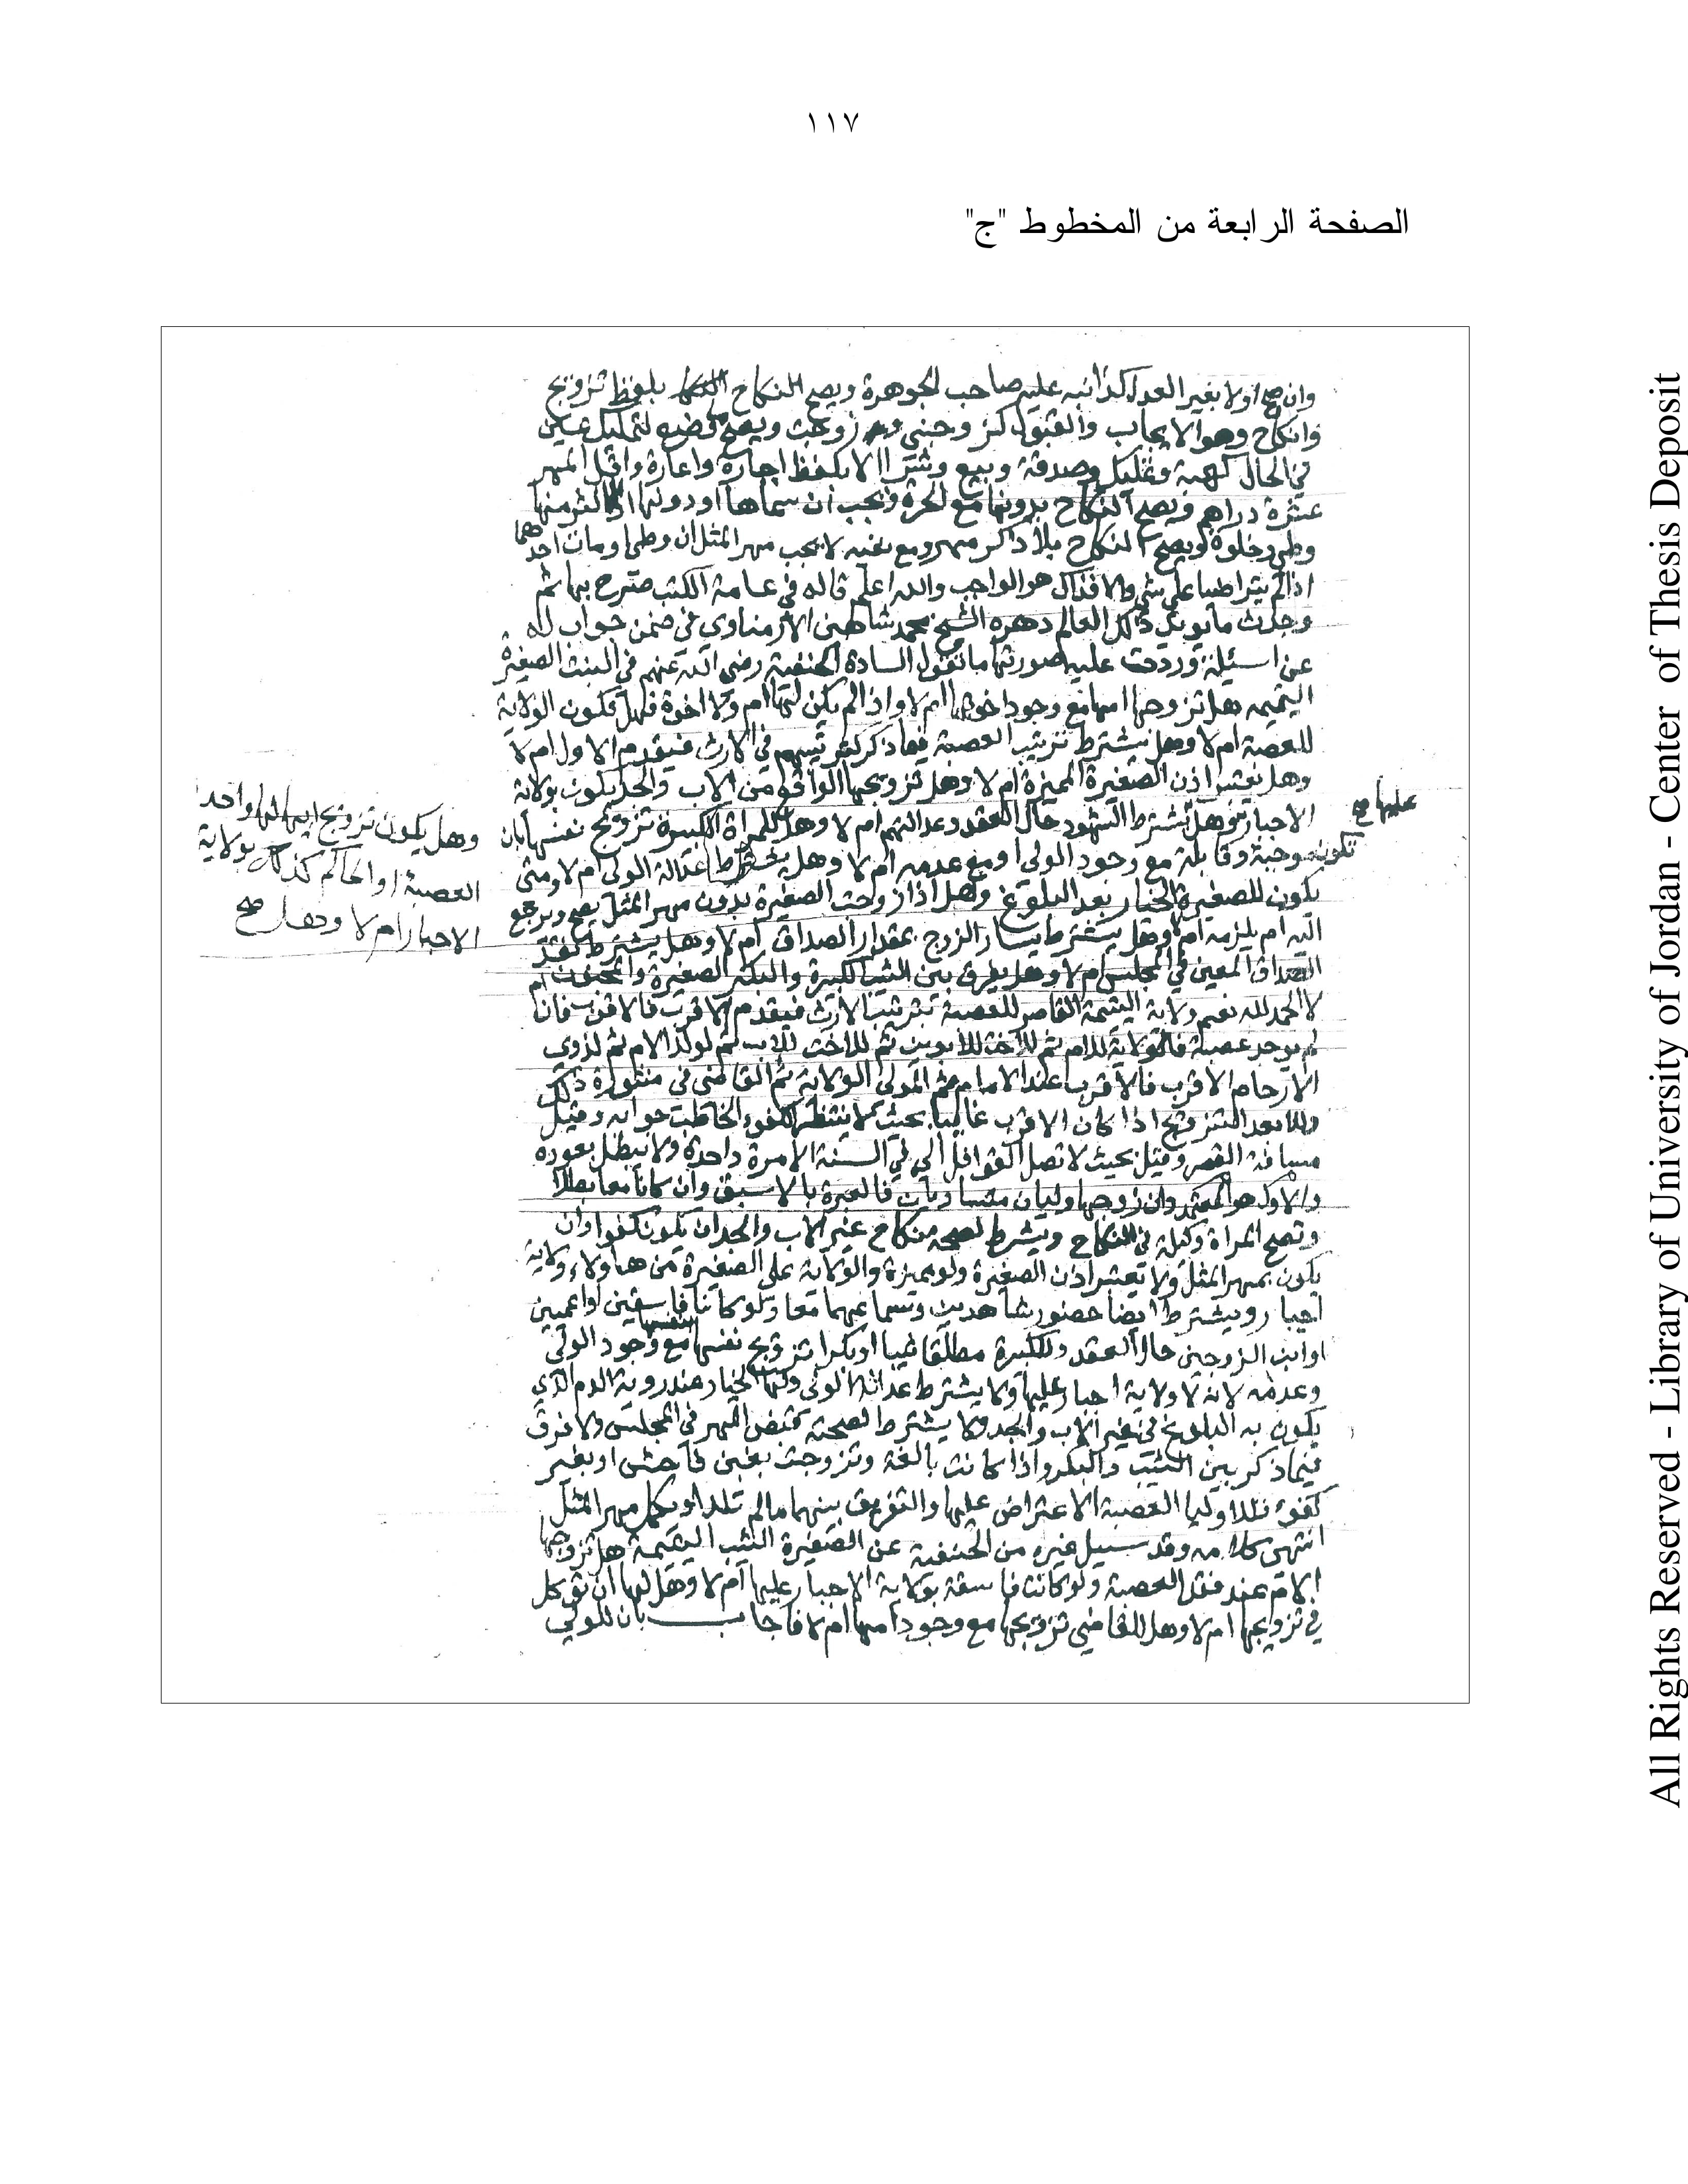 ١١٧
الصفحة الرابعة من المخطوط "ج"
وان صح اولا بغير العدل كذا نبه عليه صاحب الجوهرة ويصح النكاح بلفظ تزويج
وانكاح وهو الايجاب والقبول كزوجني زوجت ويصح لتمليك عين
في الحال كهبة وتمليك وصدقة وبيع وشرا لا بلفظ اجارة واعارة واقل المهر
عشرة دراهم ويصح النكاح بدونها مع الحرة وتجب ان سماها او دونها
وطي وخلوة ويصح النكاح بلا ذكر مهر ومع نفيه مهر المثل ان وطي او مات احدهما
اذا لم يتراضيا على شي والا فذاك هو الواجب والله اعلم قاله في عامة الكتب صرح بها ثم
وجدت ما يويد ذلك العالم دهره الشيخ محمد شاهين الارمناوي في ضمن جواب له
عن اسئلة وردت عليه صورتها ما تقول السادة الحنفية رضي الله عنهم في البنت الصغيرة
اليتيمه هل تزوجها امها مع وجود اخوتها ام لا واذا لم يكن لها ام ولا اخوة فهل تكون الولاية
للعصبة ام لا وهل يشترط ترتيب العصبة فيما ذكر كترتيبهم في الارث فيقدم الاول ام لا
وهل يعتبر اذن الصغيرة المميزة ام لا وهل تزويجها الواقع من الاب والجد يكون بولاية
عليها صح
الاجبار وهل تشترط الشهود حال العقد وعدالتهم ام لا وهل للمراة الكبيرة تزويج نفسها بان
تكون موجبة وقابلة مع وجود الولي او مع عدمه ام لا وهل يشترط عدالة الولي ام لا ومتى
وهل يكون تزويج واحد
العصبة او الحاكم كذلك بولاية
الاجبار ام لا وهل صح
يكون للصغيرة الخيار بعد البلوغ وهل اذا زوجت الصغيرة بدون مهر المثل يصح ويرجع
اليه ام يلزمه ام لا وهل يشترط يسار الزوج بمقدار الصداق ام لا وهل يشترط
الصداق المعين في المجلس ام لا وهل يفرق بين الثيب الكبيرة والبكر الصغيرة والمجنون ام
لا الحمد لله نعم ولاية اليتيمة القاصر للعصبة بترتيب الارث فيقدم الاقرب فالاقرب فان
لم يوجد عصبة فالولاية للام ثم للاخت للابوين ثم للاخت للاب ثم لولد الام ثم لذوي
الارحام الاقرب فالاقرب عند الامام ثم المولى الولاية ثم القاضي في منشوره ذلك
التزويج اذا كان الاقرب غايبا بحيث لا ينتظر الكفوء الخاطب جوابه وقيل
مسافة القصر وقيل بحيث لا تصل القوافل اليه في السنة الا مرة واحدة ولا يبطل بعوده
والاول هو المعتمد وان زوجها وليان متساويان فالعبرة بالاسبق وان كانا معا بطلا
وتصح المراة وكيلة في النكاح ويشترط لصحة نكاح غير الاب والجد ان يكون كفوا وان
يكون بمهر المثل ولا تعتبر اذن الصغيرة ولو مميزة والولاية على الصغيرة من هاولاء ولاية
اجبار ويشترط ايضا حضور شاهدين وسماعهما معا ولو كانا فاسقين او اعميين
او ابني الزوجين حال العقد وللكبيرة مطلقا ثيبا او بكرا تزويج نفسها مع وجود الولي
وعدمه لانه لا ولاية اجبار عليها ولا يشترط عدالة الولي ولها الخيار عند روية الدم الذي
يكون به البلوغ في غير الاب والجد ولا يشترط لصحته قبض المهر في المجلس ولا فرق
فيما ذكر بين الثيب والبكر واذا كانت بالغة وتزوجت بغبن فاحش او بغير
كفوء فللاوليا العصبة الاعتراض عليها والتفريق بينهما ما لم تلد او يكمل مهر المثل
انتهى كلامه وقد سيل غيره من الحنفية عن الصغيرة الثيب اليتيمة هل تزوجها
الام عند فقد العصبة ولو كانت فاسقة بولاية الاجبار عليها ام لا وهل لها ان توكل
في تزويجها ام لا وهل للقاضي تزويجها مع وجود امها ام لا فاجاب بان للولي
All Rights Reserved - Library of University of Jordan - Center of Thesis Deposit